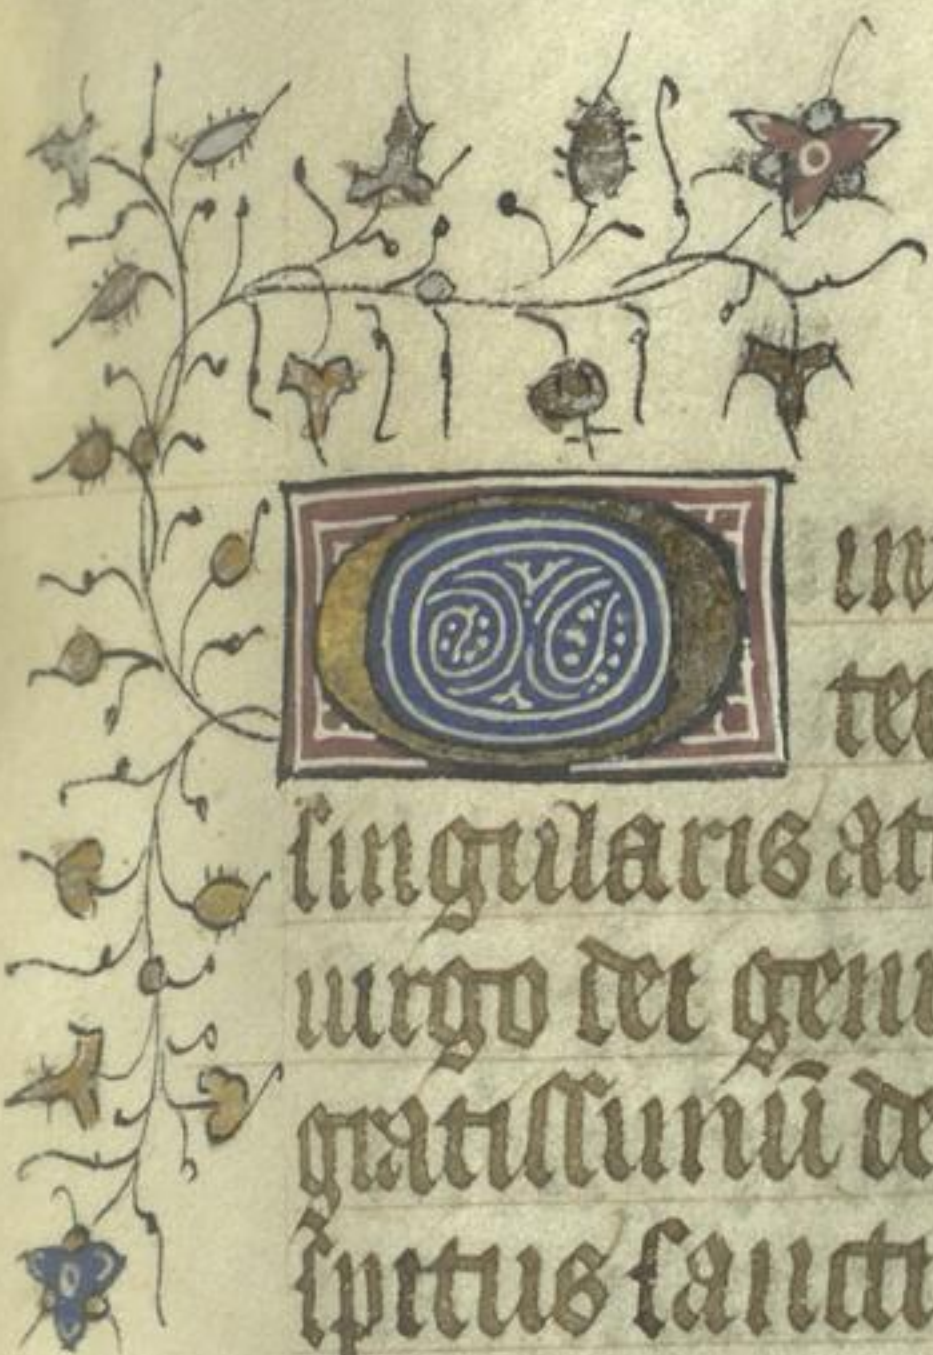 O in
te
singularis at
uirgo dei geni
gratissimū de
sp̄itus sancti